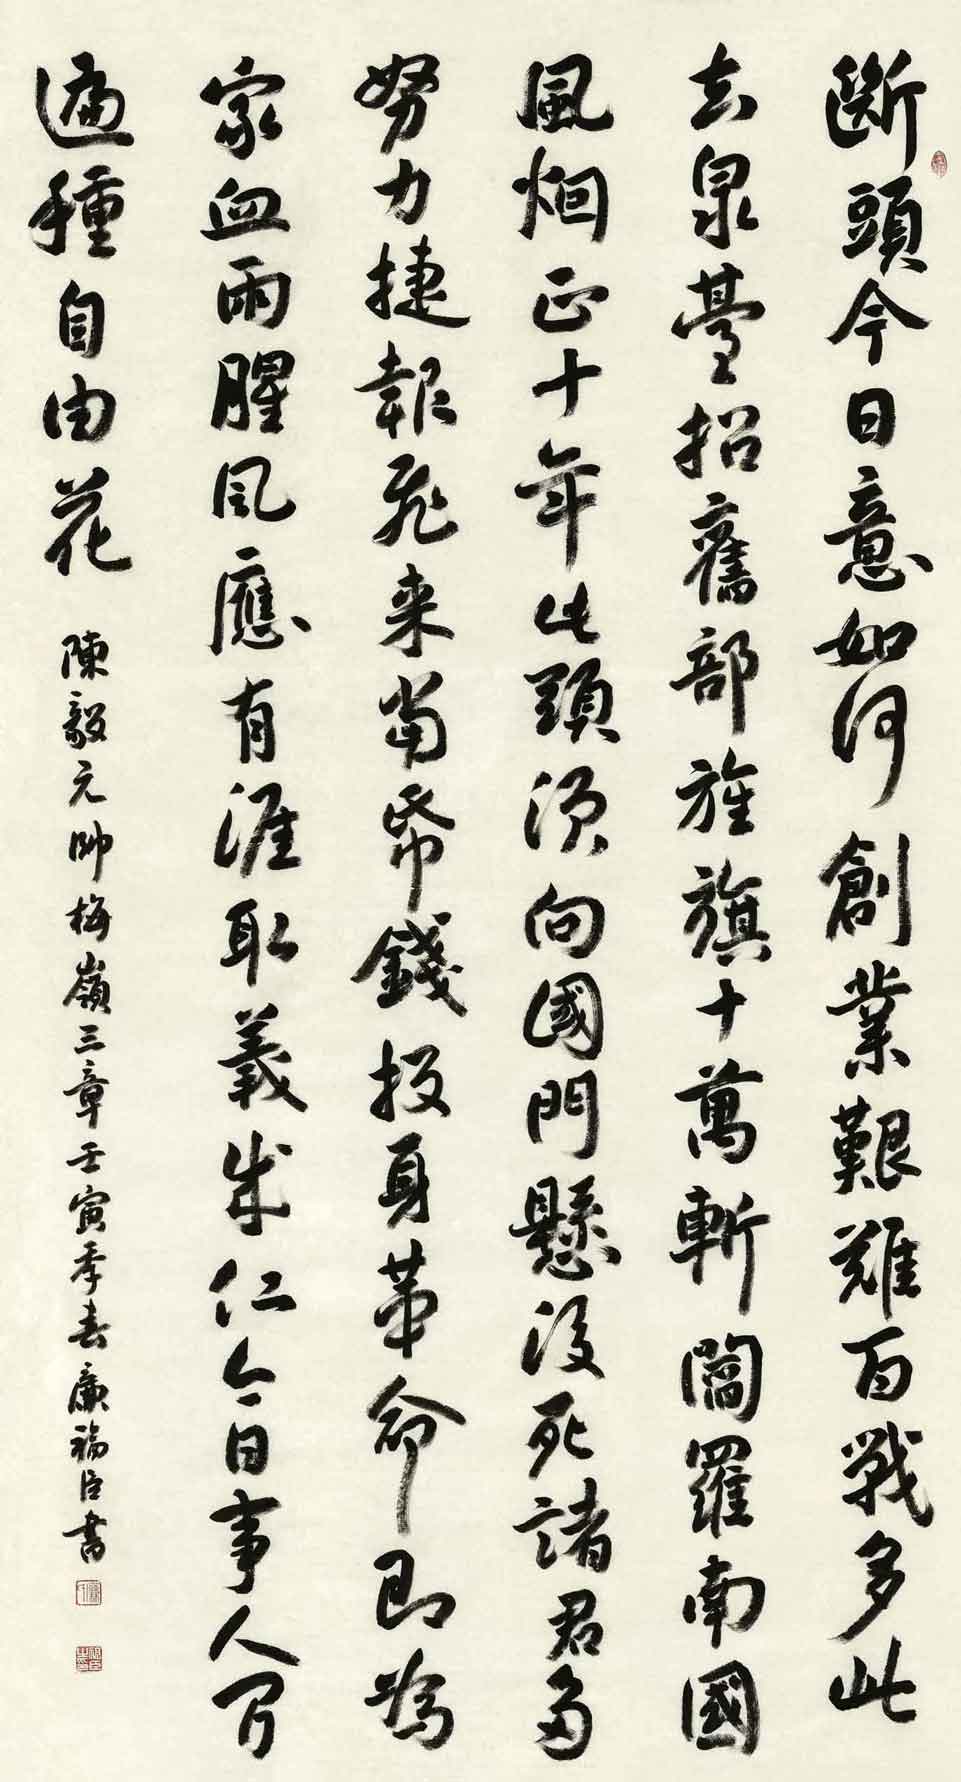 斷頭今日意如何創業艱難百戰多此
去泉臺招舊部旌旗十萬斬閻羅南國
風烟正十年此頭須向國門懸後死諸君多
努力捷報飛来當帋錢投身革命即為
家血雨腥風應有涯取義成仁今日事人間
遍種自由花
陳毅元帥梅嶺三章壬寅季春廉福臣書